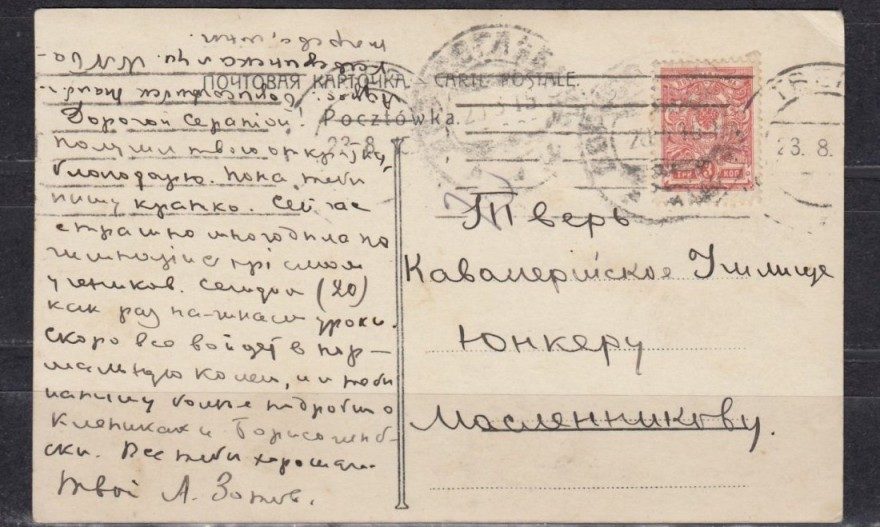 ПОЧТОВАЯ КАРТОЧКА. CARTE POSTALE.
Pocztówka.
23. 8.
ТРИ КОП
Дорогой Серапион!
получил твою открытку,
благодарю. Пока тебе
пишу кратко. Сейчас
страшно много дела по
гимназии с приемом
учеников. Сегодня (20)
как раз начинаем уроки.
Скоро все войдет в нор-
мальную колею, и я тебе
напишу более подробно о
и Борисоглеб-
ске. Все тебе хорошего.
Твой А. Зотов.
Тверь
Кавалерийское Училище
Юнкеру
Масленникову.